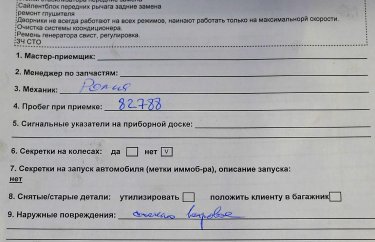 Сайлентблок передних рычага задние замена
ремонт глушителя
Дворники не всегда работают на всех режимов, наинают работать только на максимальнорй скорости.
Очистка системы кондиционера.
Ремень генератора свист, регулировка.
ЗЧ СТО
1. Мастер-приемщик:
2. Менеджер по запчастям:
3. Механик:
4. Пробег при приемке: 82788
5. Сигнальные указатели на приборной доске:
6. Секретки на колесах: да нет v
7. Секретки на запуск автомобиля (метки иммоб-ра), описание запуска:
нет
8. Снятые/старые детали: утилизировать положить клиенту в багажник
9. Наружные повреждения: